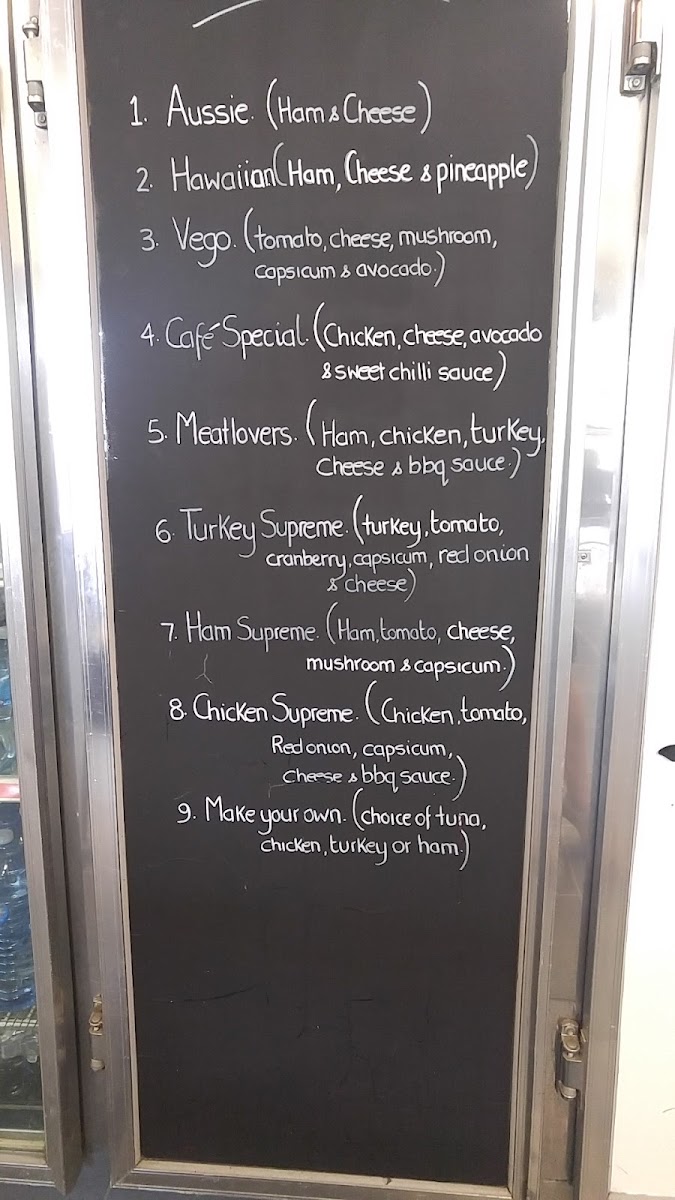 1. Aussie. (Ham & Cheese)
2. Hawaiian (Ham, Cheese & pineapple)
3. Vego. (tomato, cheese, mushroom,
capsicum & avocado.)
4. Café Special. (Chicken, cheese, avocado
& sweet chilli sauce)
5. Meatlovers. (Ham, chicken, turkey,
Cheese & bbq sauce.)
6. Turkey Supreme. (turkey, tomato,
cranberry, capsicum, red onion
& cheese)
7. Ham Supreme. (Ham, tomato, cheese,
mushroom & capsicum.)
8. Chicken Supreme. (Chicken, tomato,
Red onion, capsicum,
Cheese & bbq sauce.)
9. Make your own. (choice of tuna,
chicken, turkey or ham.)